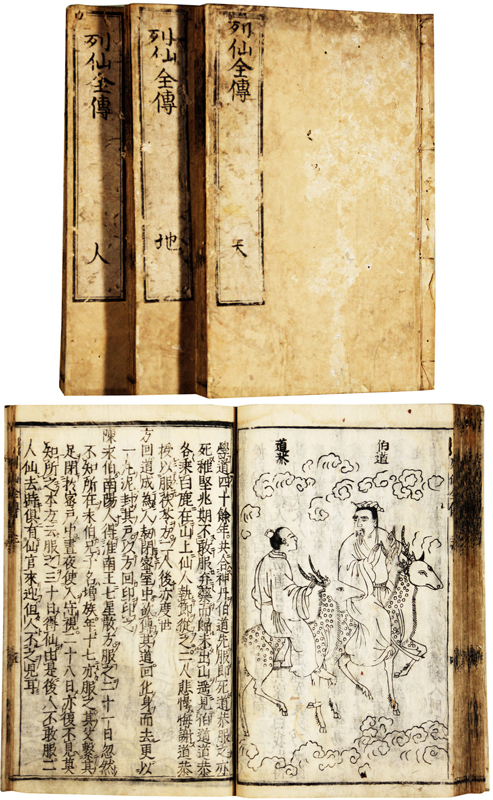 列仙全傳
天
列仙全傳
地
列仙全傳
人
伯道
道恭
學道四十餘年共合神丹伯道先服即死道恭服之亦
死稚堅兆期不敢服弃藥而歸未出山遙見伯道道恭
各乘白鹿在山上仙人執節從之二人悲愕悔謝道恭
授以服茯苓方二人後亦度世
方回道成為人劫閉室中欲傳其道回化身而去更以
一丸泥封其戶以方回印印之
陳永伯南陽人得淮南王七星散方服之二十一日忽然
不知所在永伯兄子名增族年十七亦服之其父繫其
足閉於密戶中晝夜使人守視之二十八日亦復不見莫
知所之本方云服之三十日得仙由是後人不敢服二
人仙去俱有仙官來迎但人不之見耳